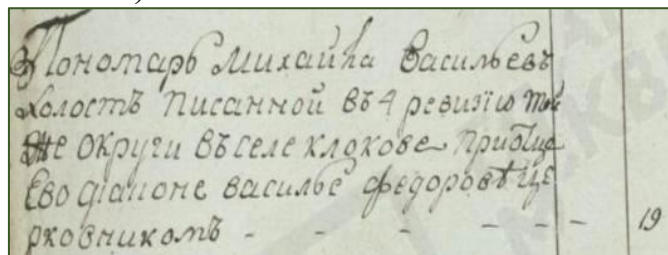 Пономарь Михайла Васильевъ
холостъ писанной въ 4 ревизїю той
же округи въ селе клокове при отце
Ево дїаконе василье федорове це
рковникомъ - - - - - - 19